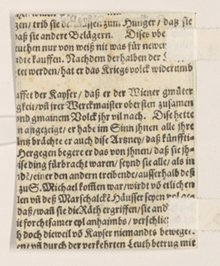 gen/ trib sie der massen zum Hunger / daß sie
daß sie andere Belägern. Dises vbe
suchen nur von weiß nit was für newer
dte kauffen. Nachdem der halben der
tet werden / hat er das Kriegsvolck widerumb
affet der Kayser / daß er der Wiener gmüter
gkeit / vñ jrer Werckmaister obersten zusamen
ond gmainem Volck jhr vil nach. Dise hette
n angezeigt / er habe im Sinn jhnen alle jhre
ung brächte er auch dise Artzney / daß kämfftig
Hergegen begere er das von jhnen / daß sie jhr
ise ding fürbracht waren / seynd sie alle / als in
nd / einer den andern treibende / ausserhalb deß
zu S. Michael koffen war / wirdt võ etlich en
len vñ deß Marschalcks Häuser seyen vol ge
daß / wañ sie die Räth ergriffen / sie and
it forchtsamer eylanhaimbs / verschlie
h doch dieweil võ Kayser niemandts beweget
en / vñ durch der verkehrten Leuth betrug mit